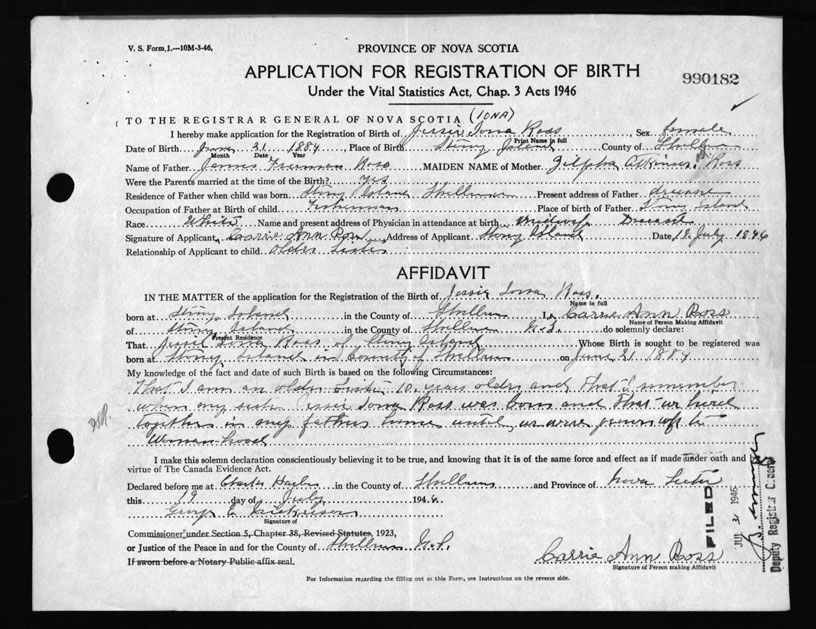 V. S. Form,1.—10M-3-46,
PROVINCE OF NOVA SCOTIA
APPLICATION FOR REGISTRATION OF BIRTH
990182
Under the Vital Statistics Act, Chap. 3 Acts 1946
TO THE REGISTRAR GENERAL OF NOVA SCOTIA (IONA)
I hereby make application for the Registration of Birth of Jessie Iona Ross Sex female
Print Name in full
Date of Birth June 21 1884 Place of Birth Stony Island County of Shelburne
Month Date Year
Name of Father James Freeman Ross MAIDEN NAME of Mother Zilpha Atkinson Ross
Were the Parents married at the time of the Birth? yes
Residence of Father when child was born Stony Island Shelburne Present address of Father
Occupation of Father at Birth of child Fisherman Place of birth of Father Stony Island
Race White Name and present address of Physician in attendance at birth midwife
Signature of Applicant Carrie Ann Ross Address of Applicant Stony Island Date July 1946
Relationship of Applicant to child older sister
AFFIDAVIT
IN THE MATTER of the application for the Registration of the Birth of Jessie Iona Ross.
Name in full
born at Stony Island in the County of Shelburne I, Carrie Ann Ross
Name of Person Making Affidavit
of Stony Island in the County of Shelburne N.S. do solemnly declare:
Present Residence
That Jessie Iona Ross of Stony Island Whose Birth is sought to be registered was
born at Stony Island in County of Shelburne on June 21 1884
My knowledge of the fact and date of such Birth is based on the following Circumstances:
That I am an older sister 10 years older and that I remember
when my sister Jessie Iona Ross was born and that we lived
together in my fathers home until we were grown up to
Womanhood
I make this solemn declaration conscientiously believing it to be true, and knowing that it is of the same force and effect as if made under oath and by
virtue of The Canada Evidence Act.
Declared before me at in the County of Shelburne and Province of Nova Scotia
this 19 day of July 1946
George E. Nickerson
Signature of
Commissioner under Section 5, Chapter 38, Revised Statutes, 1923,
or Justice of the Peace in and for the County of Shelburne N.S.
If sworn before a Notary Public affix seal.
Carrie Ann Ross
Signature of Person making Affidavit
For Information regarding the filling out of this Form, see Instructions on the reverse side.
FILED
JUL 31 1946
Deputy Registrar General